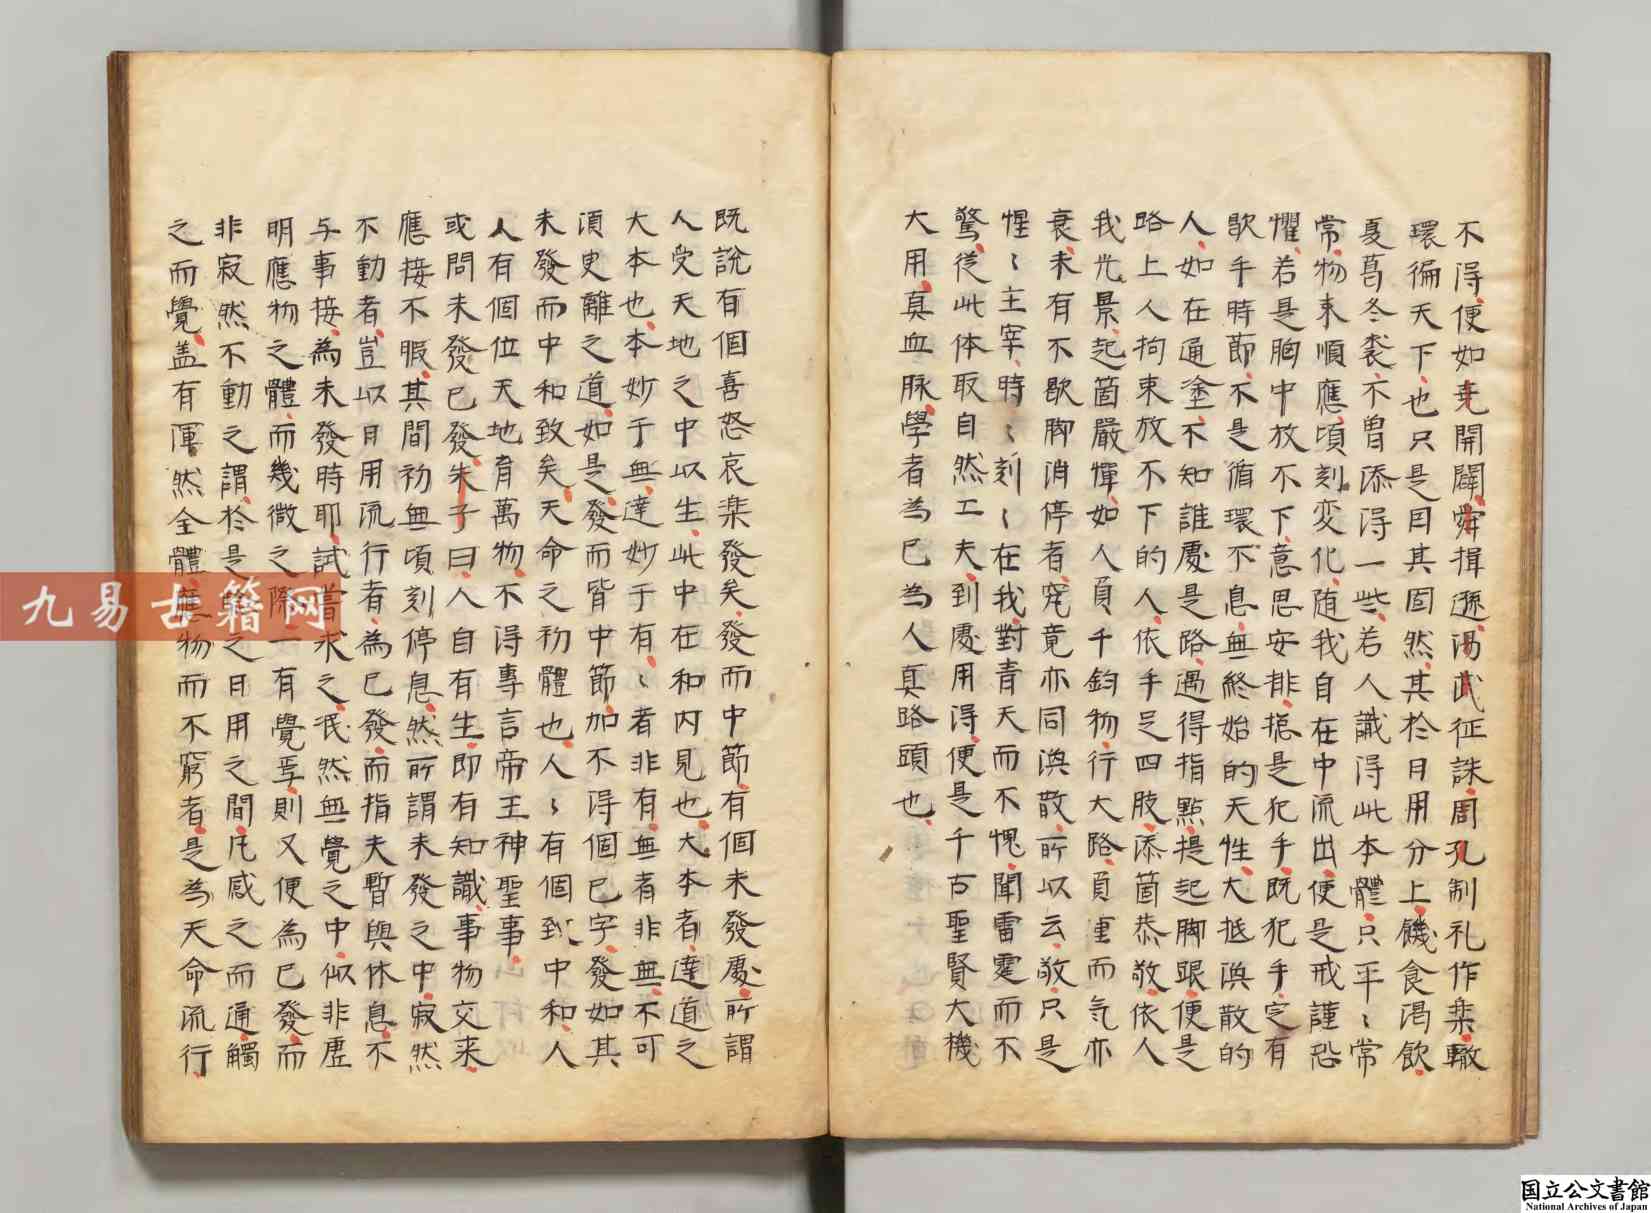 不得便如堯開闢舜揖遜湯武征誅周孔制礼作楽轍
環徧天下也只是目其固然其於日用分上饑食渇飲
夏葛冬裘不曽添得一些若人識得此本體只平〻常
常物来順應頃刻変化随我自在中流出便是戒謹恐
懼若是胸中放不下意思安排揔是犯手既犯手定有
歇手時節不是循環不息無終始的天性大抵渙散的
人如在通塗不知誰處是路遇得指點提起脚跟便是
路上人拘束放不下的人依手足四肢添箇恭敬依人
我光景起箇嚴憚如人負千鈞物行大路負重而气亦
衰未有不歇脚消停者究竟亦同渙散所以云敬只是
惺〻主宰時〻刻〻在我對青天而不愧聞雷霆而不
驚従此体取自然工夫到處用得便是千古聖賢大機
大用真血脉學者為己為人真路頭也
既說有個喜怒哀楽發矣發而中節有個未發處所謂
人受天地之中以生此中在和内見也大本者達道之
大本也本妙于無達妙于有〻者非有無者非無不可
須臾離之道如是發而皆中節加不得個已字發如其
未發而中和致矣天命之初體也人〻有個致中和人
人有個位天地育萬物不得專言帝王神聖事
或問未發已發朱子曰人自有生即有知識事物交来
應接不暇其間初無頃刻停息然所謂未發之中寂然
不動者豈以日用流行者為已發而指夫暫與休息不
与事接為未發時耶試嘗求之泯然無覺之中似非虚
明應物之體而幾微之際一有覺焉則又便為已發而
非寂然不動之謂於是驗之日用之間凡感之而通觸
之而覺盖有渾然全體應物而不窮者是為天命流行
九易古籍网
国立公文書館
National Archives of Japan